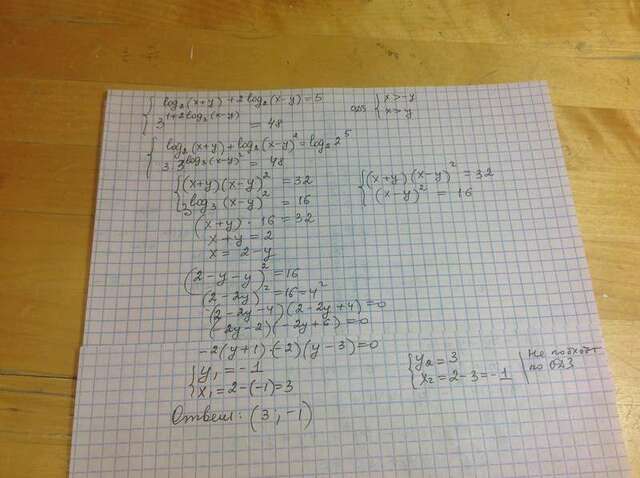 { log₂(x+y) + 2log₂(x-y) = 5
{ 3^(1+2log₃(x-y)) = 48
ОДЗ { x>-y
{ x>y
{ log₂(x+y) + log₂(x-y)² = log₂2⁵
{ 3·3^(log₃(x-y)²) = 48
{ (x+y)(x-y)² = 32
{ 3^(log₃(x-y)²) = 16
{ (x+y)(x-y)² = 32
{ (x-y)² = 16
(x+y)·16 = 32
x+y = 2
x = 2-y
(2-y-y)² = 16
(2-2y)² = 16 = 4²
(2-2y-4)(2-2y+4) = 0
(-2y-2)(-2y+6) = 0
-2(y+1)·(-2)(y-3) = 0
{ y₁ = -1
{ x₁ = 2-(-1) = 3
{ y₂ = 3
{ x₂ = 2-3 = -1
Не подходт
по ОДЗ
Ответ: (3, -1)